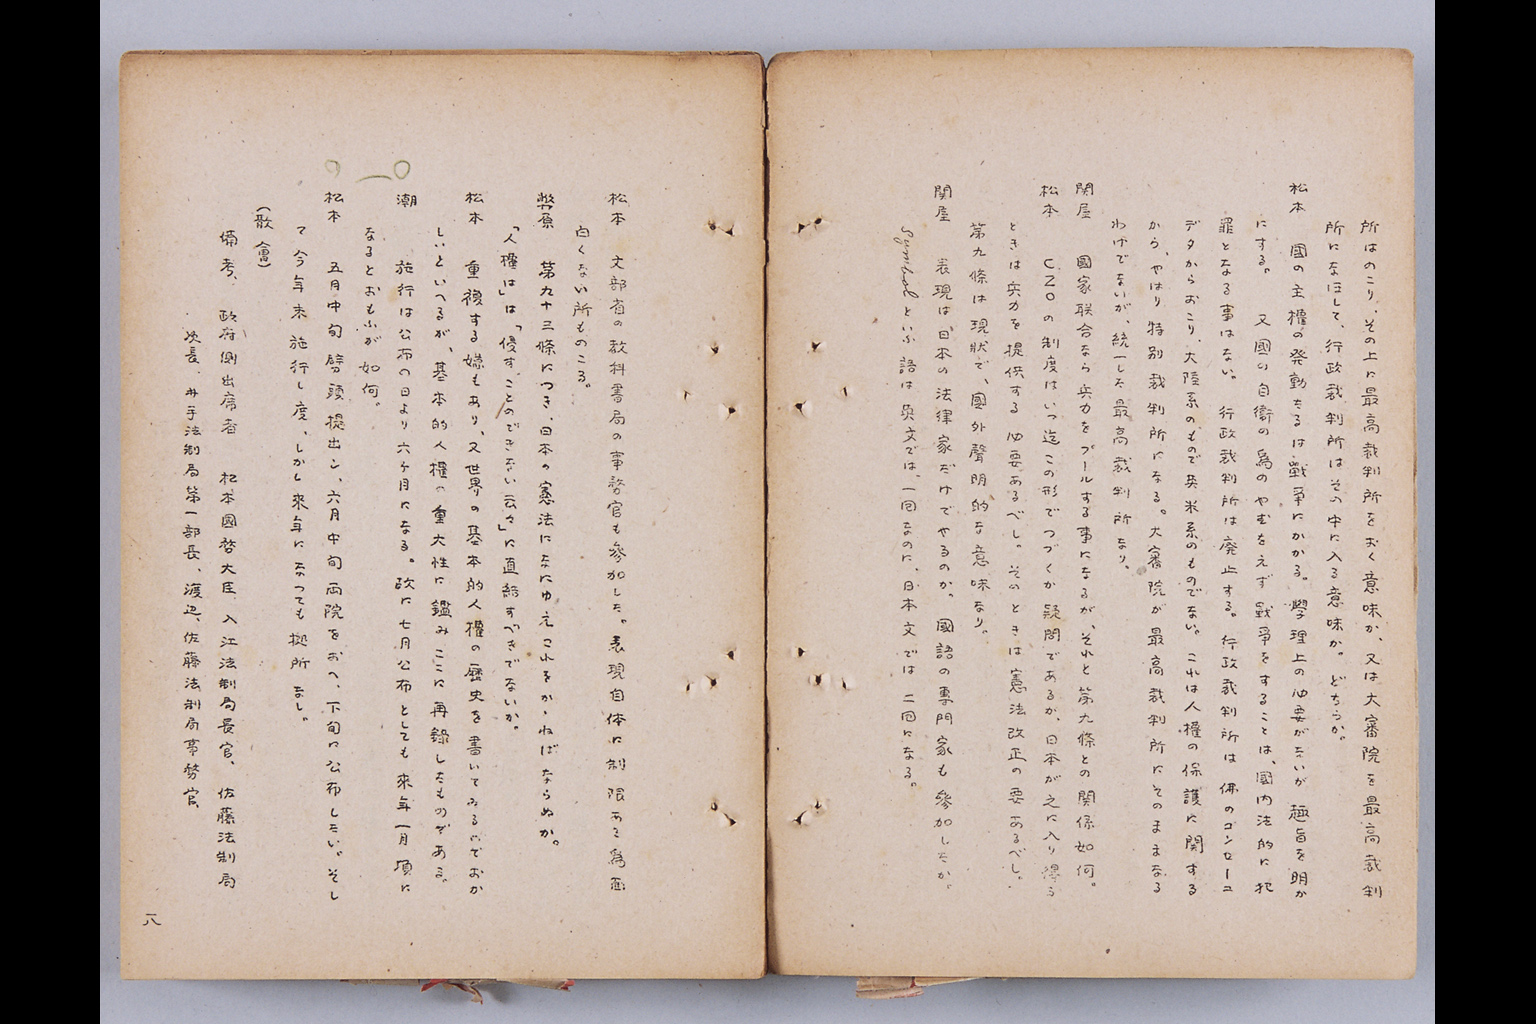 所はのこり、その上に最高裁判所をおく意味か、又は大審院を最高裁判
所になほして、行政裁判所はその中に入る意味か。どちらか。
松本 國の主權の発動たるは戰爭にかかる。學理上の必要がないが趣旨を明か
にする。 又國の自衞の為のやむをえず戰爭をすることは、國内法的に犯
罪となる事はない。行政裁判所は廃止する。行政裁判所は佛のコンセーユ
デタからおこり、大陸系のもので英米系のものでない。これは人權の保護に関する
から、やはり特別裁判所になる。大審院が最高裁判所にそのままなる
わけでないが、統一した最高裁判所なり。
関屋 國家联合なら兵力をプールする事になるが、それと第九條との関係如何。
松本 CZOの制度はいつ迄この形でつづくか疑問であるか、日本が之に入り得る
ときは兵力を提供する必要あるべし。そのときは憲法改正の要あるべし。
第九條は現狀で、國外聲明的な意味なり。
関屋 表現は日本の法律家だけでやるのか。國語の專門家も參加したか。
Symbolといふ語は英文では、一回なのに、日本文では二回になる。
松本 文部省の教科書局の事務官も參加した。表現自体に制限ある為面
白くない所ものこる。
幣原 第九十三條につき、日本の憲法になにゆえこれをかゝねばならぬか。
「人權は」は「侵すことのできない云々」に直結すべきでないか。
松本 重複する嫌もあり、又世界の基本的人權の歴史を書いてゐるのでおか
しいといへるが、基本的人權の重大性に鑑みここに再録したものである。
潮 施行は公布の日より六ケ月になる。故に七月公布としても來年一月頃に
なるとおもふが如何。
松本 五月中旬劈頭提出シ、六月中旬両院をおへ、下旬に公布したい。そし
て今年末施行し度、しかし來年になつても拠所なし。
(散會)
備考、 政府側出席者 松本國務大臣、入江法制局長官、佐藤法制局
次長、井手法制局第一部長、渡辺、佐藤法制局事務官、
一八